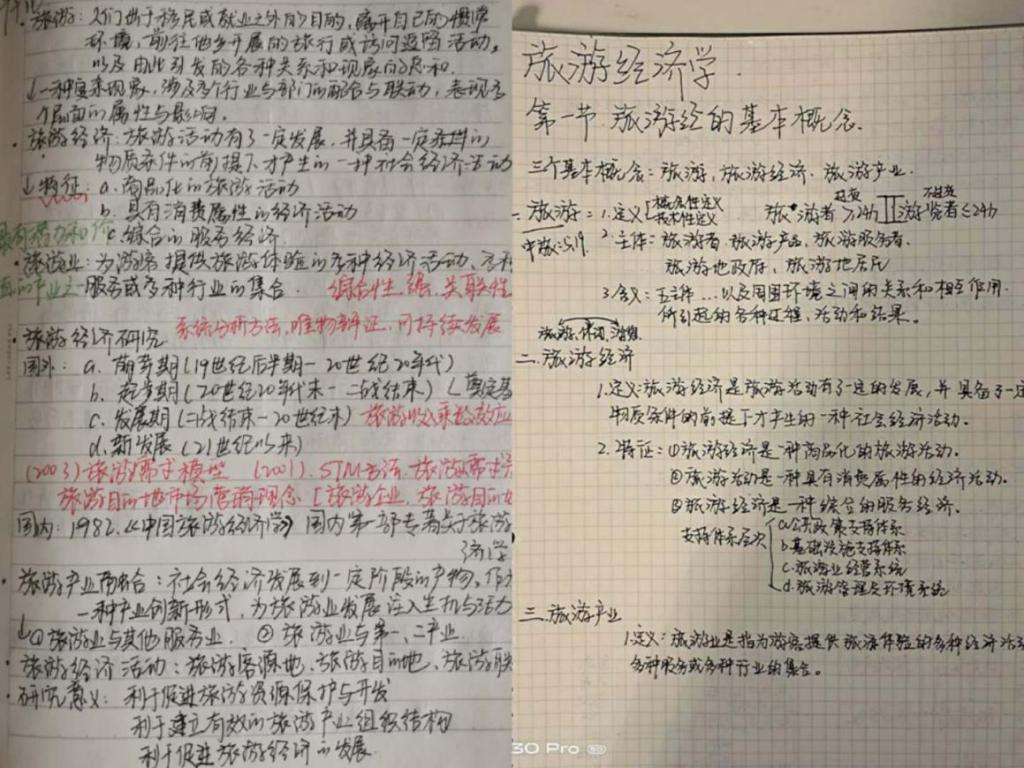 旅游：人们出于移民或就业之外的目的，离开自己的惯常
环境，前往他乡开展的旅行或访问逗留活动，
以及由此引发的各种关系和现象的总和.
↓一种复杂现象，涉及多个行业与部门的配合与联动，表现多
个层面的属性与影响.
旅游经济：旅游活动有了一定发展，并具备一定条件的
物质条件的前提下才产生的一种社会经济活动
↓特征：a.商品化的旅游活动
b.具有消费属性的经济活动
c.综合的服务经济
旅游业：为游客提供旅游体验的多种经济活动、各种
服务或多种行业的集合. 综合性 关联性
旅游经济研究 系统分析方法，唯物辩证，可持续发展
国外：a.萌芽期（19世纪后半期一20世纪20年代）
b.起步期（20世纪20年代末一二战结束）
c.发展期（二战结束一20世纪末）旅游收入乘数效应
d.新发展（21世纪以来）
（2003）旅游需求模型 （2001）. 旅游需求
旅游目的地市场营销理念[旅游企业，旅游目的地
国内：1982.《中国旅游经济学》国内第一部专著关于旅游
济学
旅游产业融合：社会经济发展到一定阶段的产物，作为
一种产业创新形式，为旅游业发展注入生机与活力
↓①旅游业与其他服务业. ②旅游业与第一、二产业.
旅游经济活动：旅游客源地，旅游目的地，旅游联
研究意义：利于促进旅游资源保护与开发
利于建立有效的旅游产业组织结构
利于促进旅游经济的发展.
旅游经济学.
第一节 旅游经的基本概念.
三个基本概念：旅游，旅游经济、旅游产业.
一.旅游：1.定义[概念性定义 技术性定义 旅游者≥24h 游览者≤24h
中旅：5.19 2.主体：旅游者.旅游产品，旅游服务者.
旅游地政府，旅游地居民
3.含义：五主体…以及周围环境之间的关系和相互作用.
所引起的各种过程，活动和结果。
二.旅游经济
1.定义：旅游经济是旅游活动有了一定的发展，并具备了一定
物质条件的前提下才产生的一种社会经济活动.
2.特征：①旅游经济是一种商品化的旅游活动.
②旅游活动是一种具有消费属性的经济活动.
③旅游经济是一种综合的服务经济.
支持体系层次 a.公共政策支持体系
b.基础设施支持体系
c.旅游业经营系统
d.旅游管理及环境系统
三.旅游产业
1.定义：旅游业是指为游客提供旅游体验的多种经济活动
各种服务或多种行业的集合。
30 Pro 5G